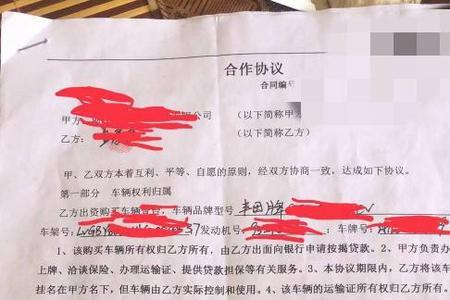 合作协议
合同编
甲方 公司 （以下简称甲
乙方： （以下简称乙方）
甲、乙双方本着互利、平等、自愿的原则，经双方协商一致，达成如下协议。
第一部分 车辆权利归属
乙方出资购买车辆壹台，车辆品牌型号 丰田牌
车架号： 发动机号 ；车牌号：
1、该购买车辆所有权归乙方所有，由乙方出面向银行申请按揭贷款。2、甲方负责办
上牌、洽谈保险、办理运输证、提供贷款担保等有关服务。3、本协议期限内，乙方将该
挂名在甲方名下，但车辆由乙方实际控制和使用。4、该车辆的运输证所有权归乙方所有